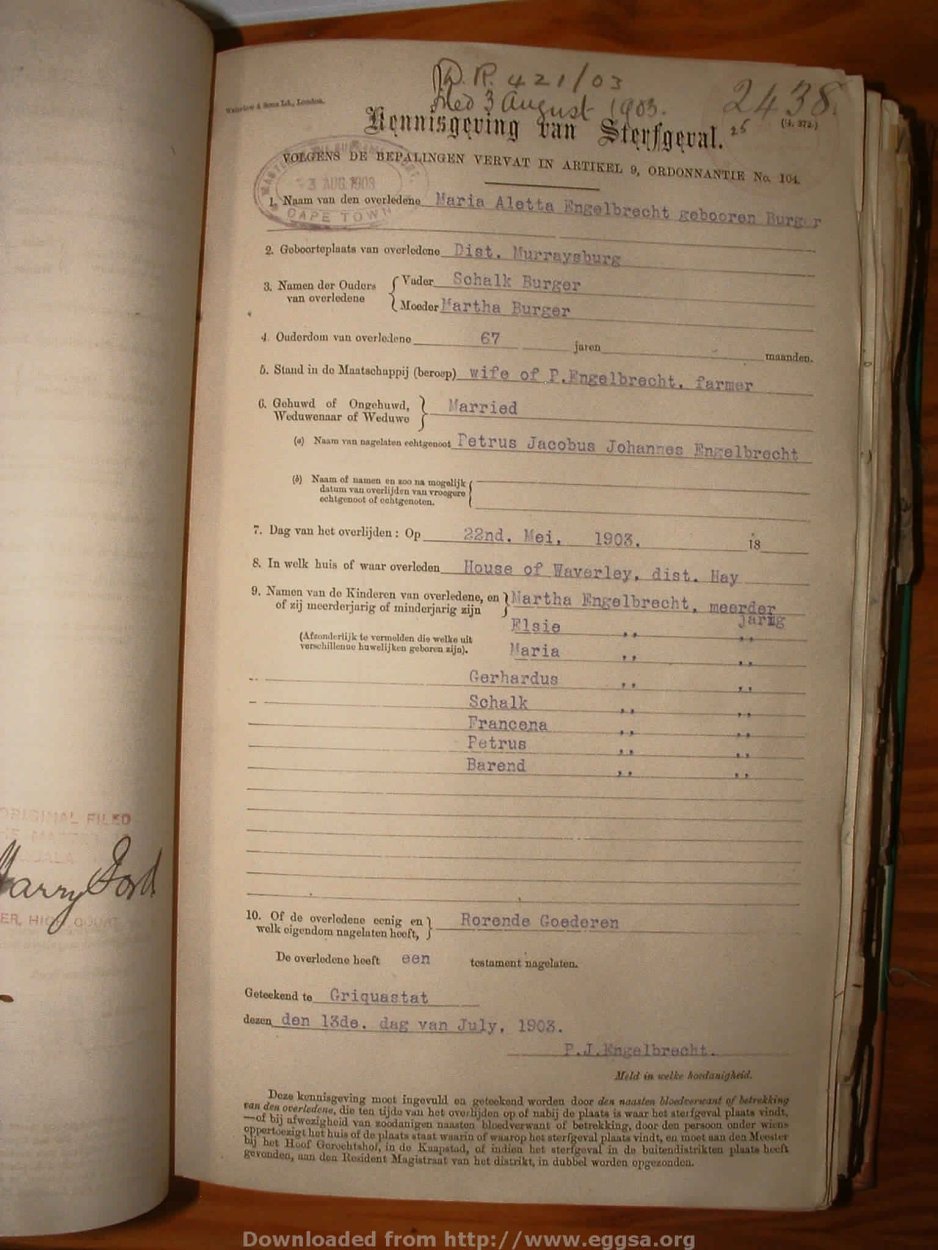 D.R. 421/03
filed 3 August 1903.
2438.
25
(4. 372.)
Waterlow & Sons Ld., London.
Kennisgeving van Sterfgeval.
VOLGENS DE BEPALINGEN VERVAT IN ARTIKEL 9, ORDONNANTIE No. 104.
3 AUG. 1903
CAPE TOWN
1. Naam van den overledene Maria Aletta Engelbrecht gebooren Burger
2. Geboorteplaats van overledene Dist. Murraysburg
3. Namen der Ouders van overledene { Vader Schalk Burger
Moeder Martha Burger
4. Ouderdom van overledene 67 jaren maanden.
5. Stand in de Maatschappij (beroep) wife of P.Engelbrecht, farmer
6. Gehuwd of Ongehuwd, Weduwenaar of Weduwe } Married
(a) Naam van nagelaten echtgenoot Petrus Jacobus Johannes Engelbrecht
(b) Naam of namen en zoo na mogelijk
datum van overlijden van vroegere
echtgenoot of echtgenoten.
7. Dag van het overlijden: Op 22nd. Mei, 1903. 18
8. In welk huis of waar overleden House of Waverley, dist. Hay
9. Namen van de Kinderen van overledene, en of zij meerderjarig of minderjarig zijn } Martha Engelbrecht, meerder
jarig
Elsie ,, ,,
(Afzonderlijk te vermelden die welke uit
verschillende huwelijken geboren zijn).
Maria ,, ,,
Gerhardus ,, ,,
Schalk ,, ,,
Francena ,, ,,
Petrus ,, ,,
Barend ,, ,,
10. Of de overledene eenig en welk eigendom nagelaten heeft, } Rorende Goederen
De overledene heeft een testament nagelaten.
Geteekend te Griquastat
dezen den 13de. dag van July, 1903.
P.J.Engelbrecht.
Meld in welke hoedanigheid.
Deze kennisgeving moet ingevuld en geteekend worden door den naasten bloedverwant of betrekking
van den overledene, die ten tijde van het overlijden op of nabij de plaats is waar het sterfgeval plaats vindt,
—of bij afwezigheid van zoodanigen naasten bloedverwant of betrekking, door den persoon onder wiens
oppertoezigt het huis of de plaats staat waarin of waarop het sterfgeval plaats vindt, en moet aan den Meester
bij het Hoof Gerechtshof, in de Kaapstad, of indien het sterfgeval in de buitendistrikten plaats heeft
gevonden, aan den Resident Magistraat van het distrikt, in dubbel worden opgezonden.
ORIGINAL FILED
Harry Ford
Downloaded from http://www.eggsa.org